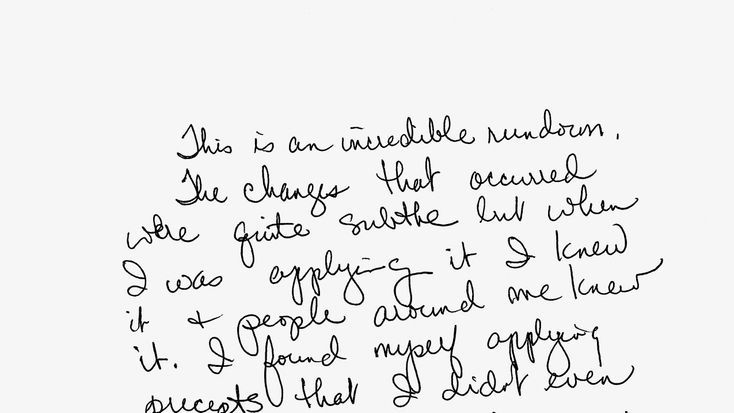 This is an incredible rundown.
The changes that occurred
were quite subthe but when
I was applying it I knew
it & people around me knew
it. I found myself applying
precepts that I didn't even